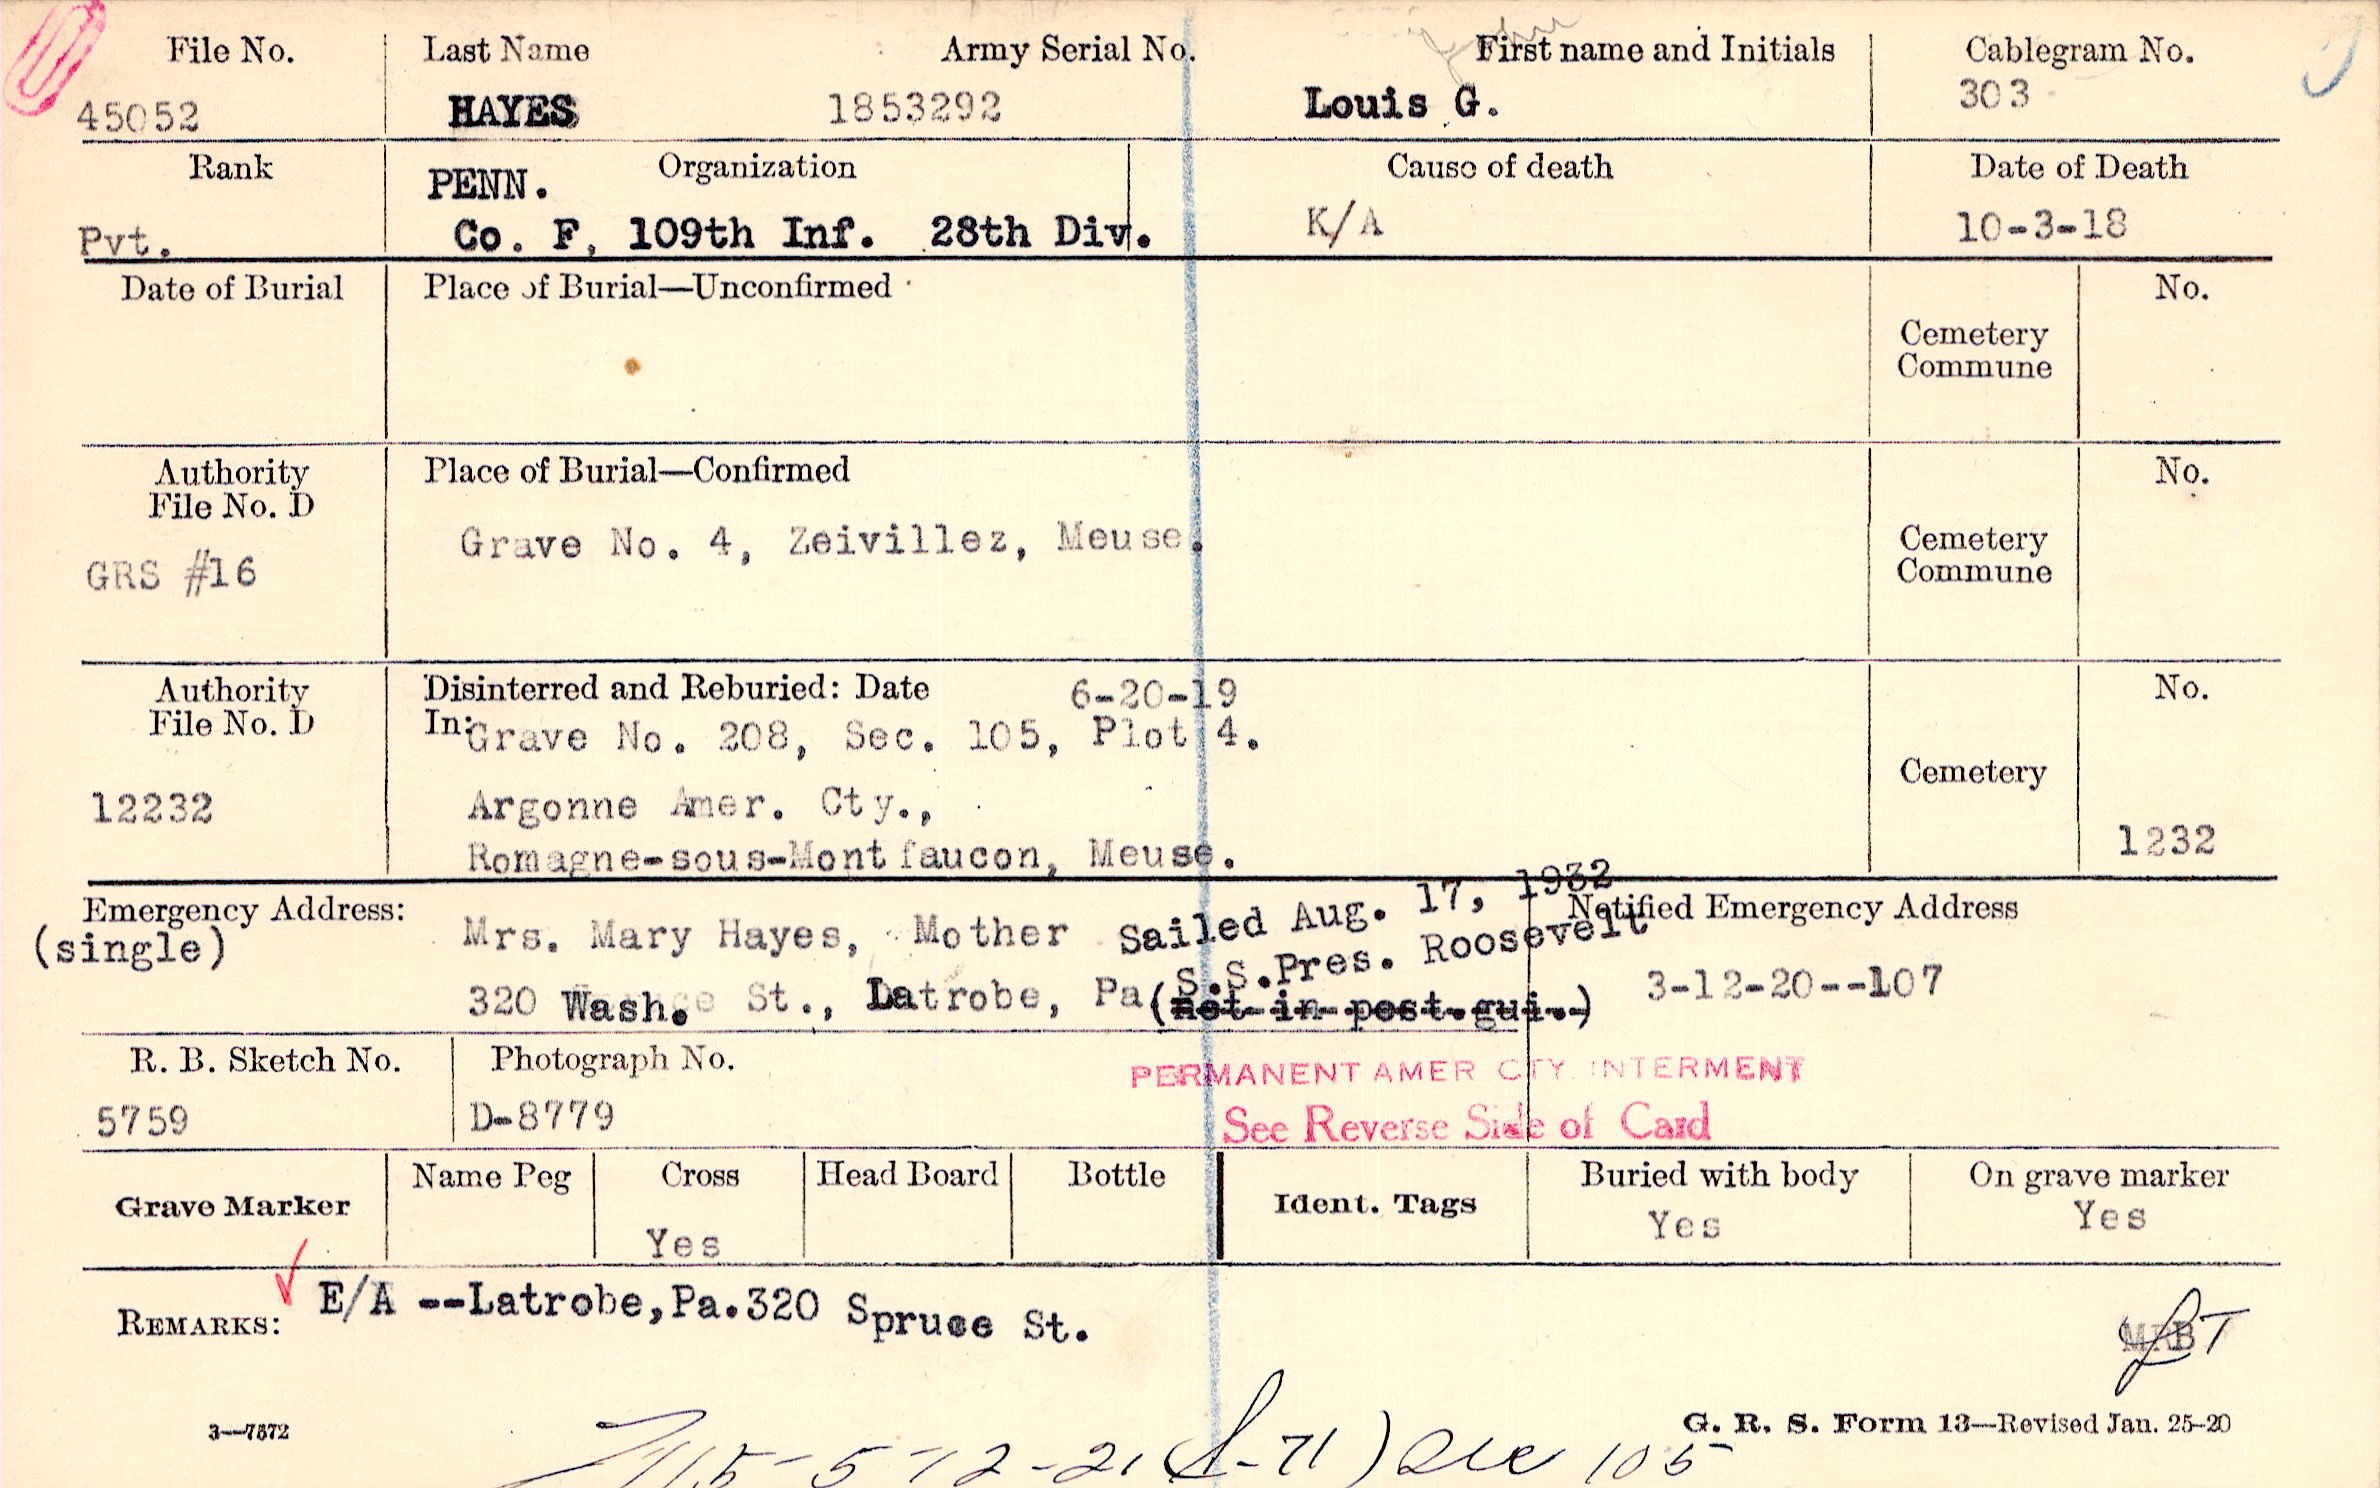 File No. Last Name Army Serial No. First name and Initials Cablegram No.
45052 HAYES 1853292 Louis G. 303
Rank Organization Cause of death Date of Death
PENN.
Pvt. Co. F, 109th Inf. 28th Div. K/A 10-3-18
Date of Burial Place of Burial—Unconfirmed No.
Cemetery
Commune
Authority Place of Burial—Confirmed No.
File No. D
GRS #16 Grave No. 4, Zeivillez, Meuse. Cemetery
Commune
Authority Disinterred and Reburied: Date 6-20-19 No.
File No. D In: Grave No. 208, Sec. 105, Plot 4.
Cemetery
12232 Argonne Amer. Cty.,
Romagne-sous-Montfaucon, Meuse. 1232
Emergency Address: Mrs. Mary Hayes, Mother Sailed Aug. 17, 1932 Notified Emergency Address
(single) S.S.Pres. Roosevelt
320 Wash. St., Latrobe, Pa (not in post.gui.) 3-12-20--107
R. B. Sketch No. Photograph No. PERMANENT AMER CTY. INTERMENT
5759 D-8779 See Reverse Side of Card
Grave Marker Name Peg Cross Head Board Bottle Ident. Tags Buried with body On grave marker
Yes Yes Yes
REMARKS: E/A --Latrobe,Pa.320 Spruce St.
MRB
3—7572 G. R. S. Form 13—Revised Jan. 25-20
105